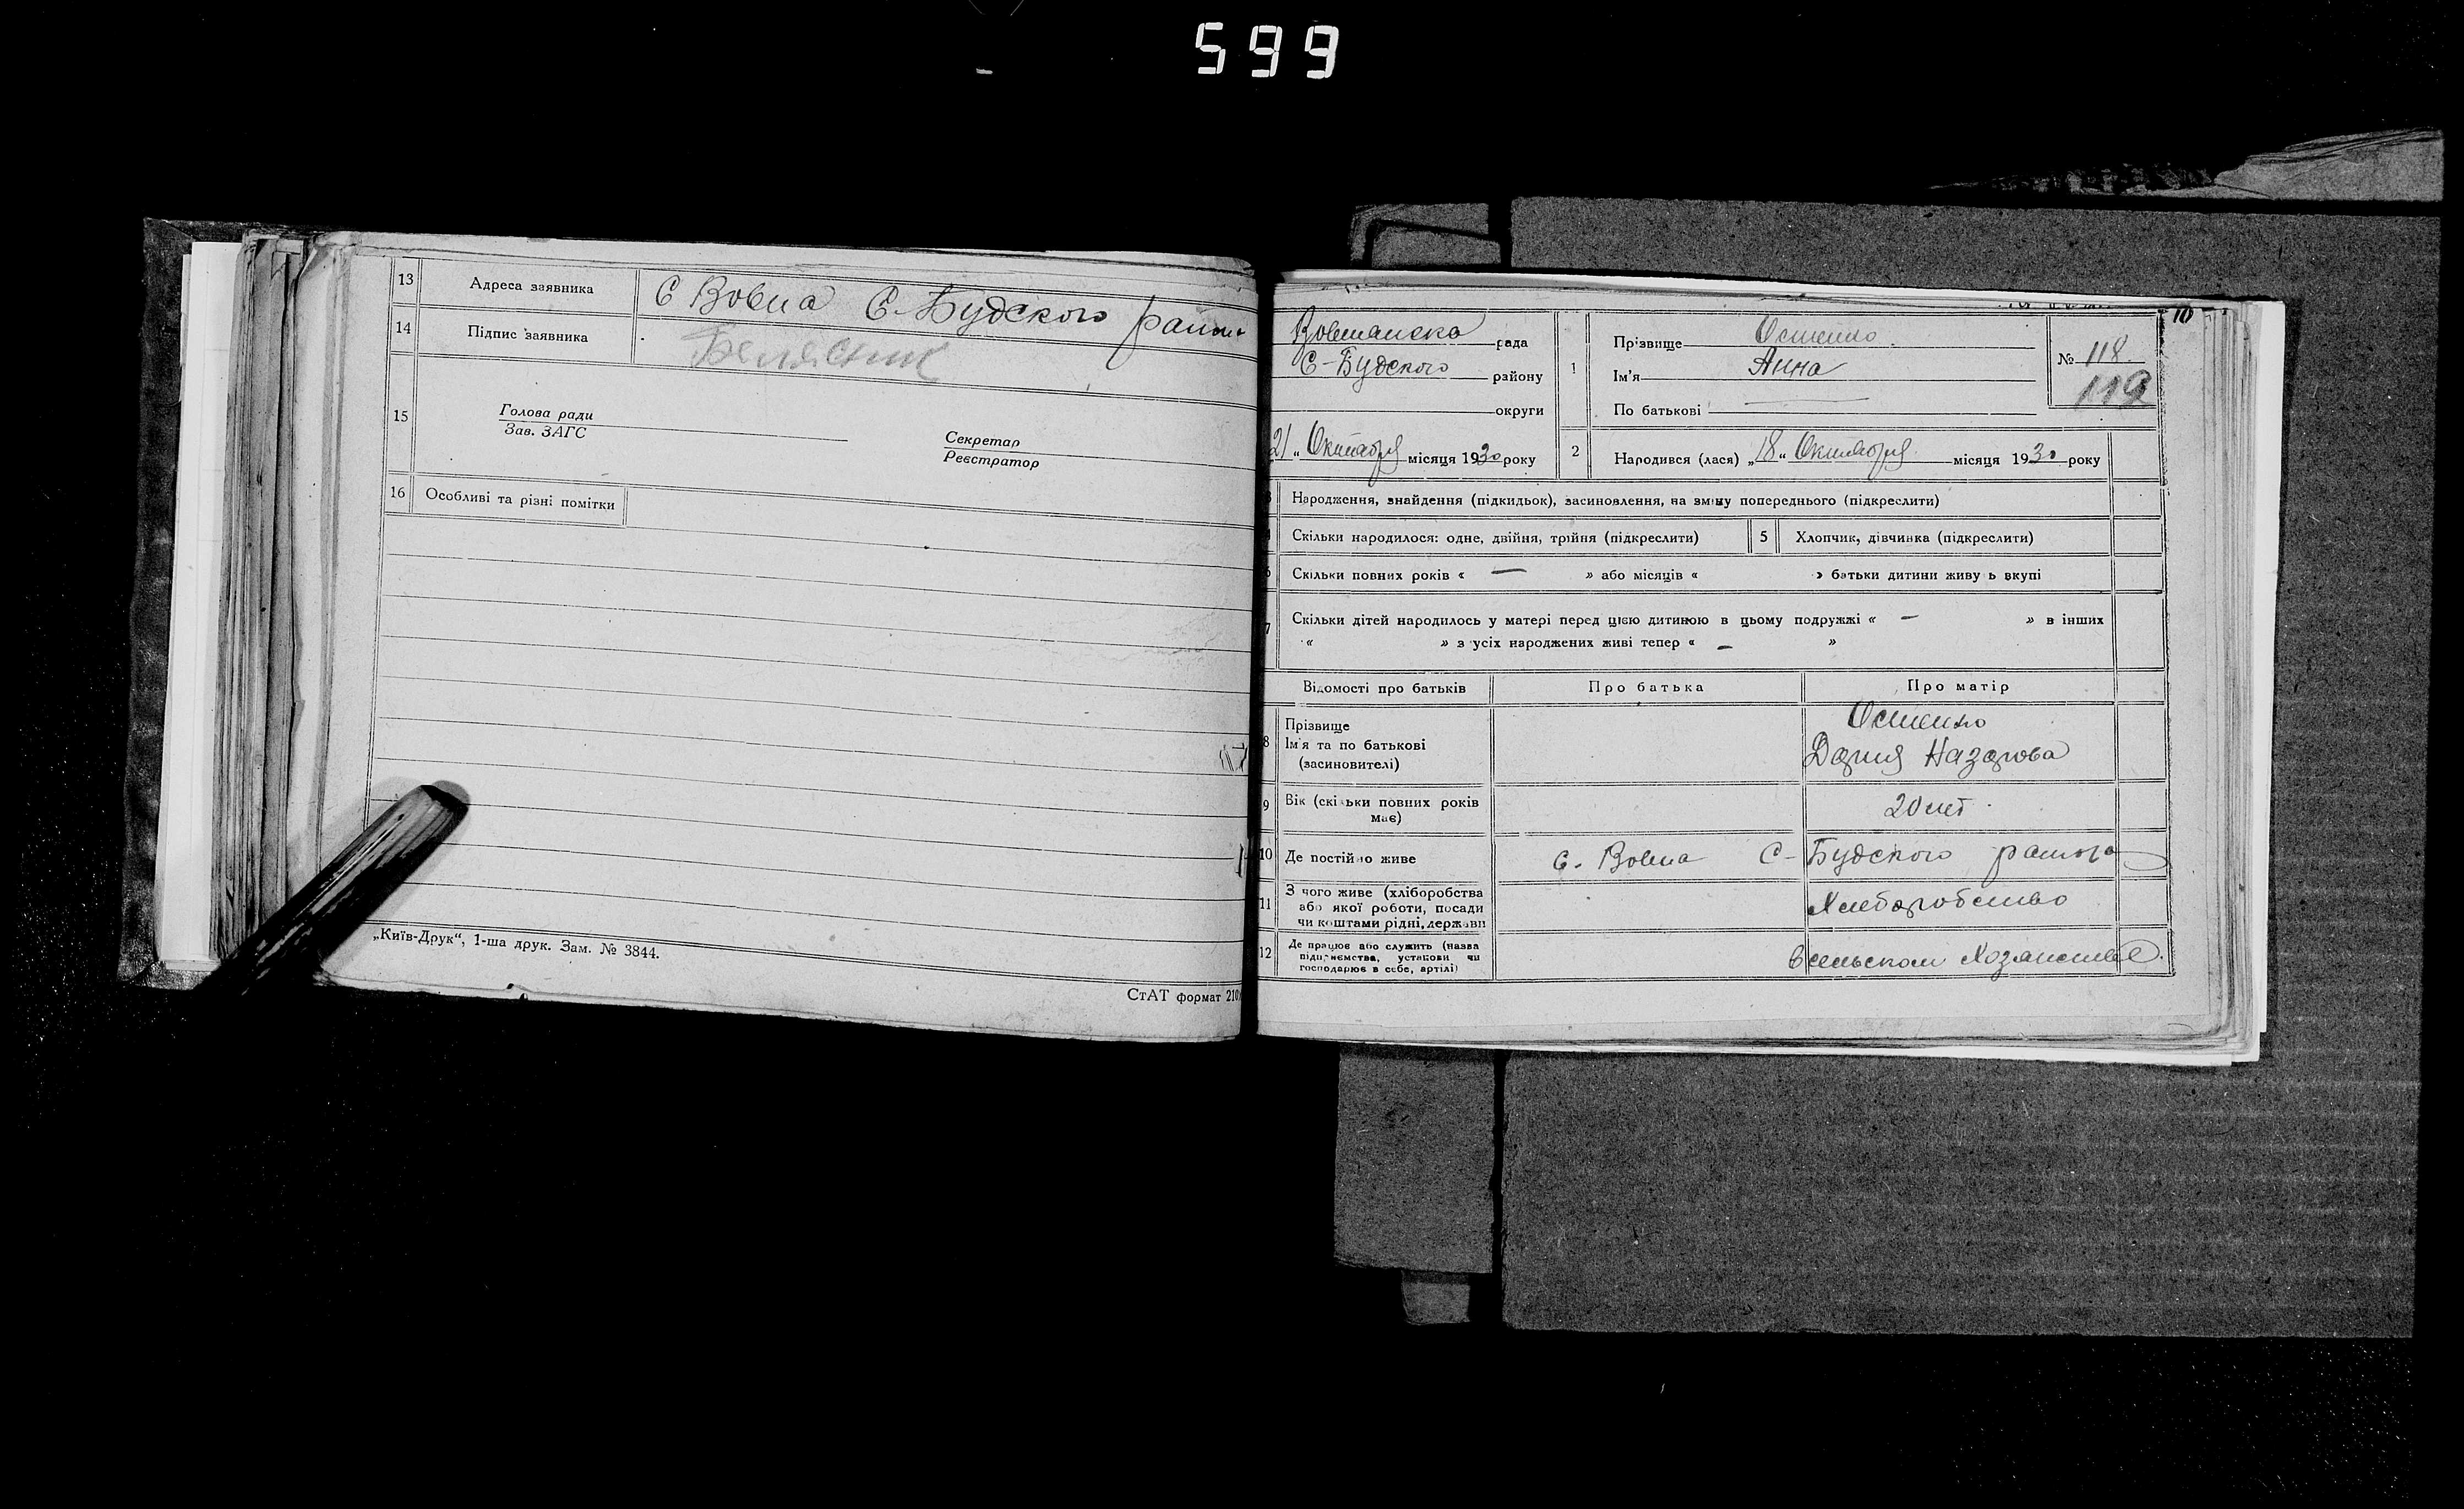 599
13 Адреса заявника С Вовна С-Будского район
14 Підпис заявника
15 Голова ради
Зав. ЗАГС
Секретар
Реєстратор
16 Особливі та різні помітки
„Київ-Друк“, 1-ша друк. Зам. № 3844.
СтАТ формат 210
10
рада
С-Будского району
округи
21 „ Октября місяця 1930 року
1 Прізвище Остенко
Ім'я Анна
По батькові
№ 118.
119
2 Народився (лася) „18“ Октября місяця 1930 року
Народження, знайдення (підкидьок), засиновлення, на зміну попереднього (підкреслити)
Скільки народилося: одне, двійня, трійня (підкреслити) 5 Хлопчик, дівчинка (підкреслити)
Скільки повних років « — » або місяців « » батьки дитини живу ь вкупі
7 Скільки дітей народилось у матері перед цією дитиною в цьому подружжі « — » в інших
« » з усіх народжених живі тепер « — »
Відомості про батьків Про батька Про матір
8 Прізвище
Ім'я та по батькові
(засиновителі)
Остенко
Дария Назарова
9 Вік (скільки повних років
має)
20 лет
10 Де постійно живе с. Вовна С-Будского района
11 З чого живе (хліборобства
або якої роботи, посади
чи коштами рідні, держави
Хлеборобство
12 Де працює або служить (назва
підприємства, установи чи
господарює в себе, артілі)
в сельском хозяистве.